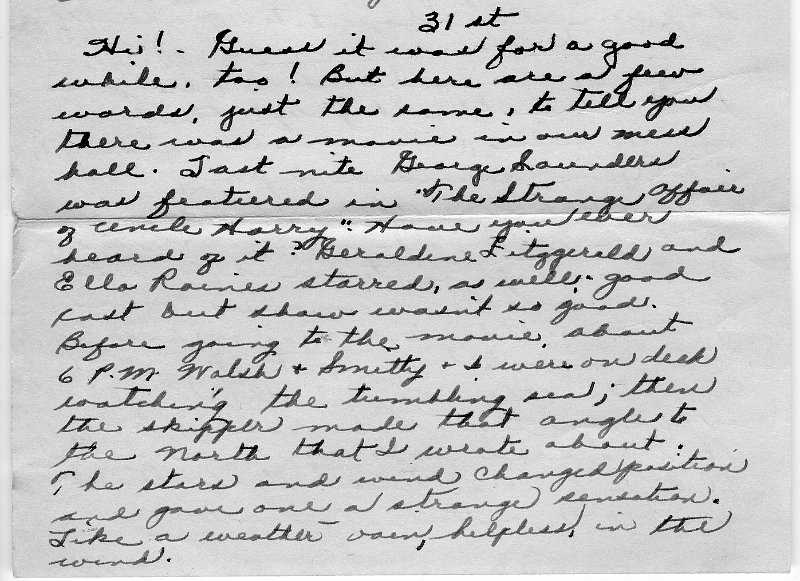 31 st
Hi! - Guess it was for a good
while, too! But here are a few
words, just the same, to tell you
there was a movie in our mess
hall. Last nite George Saunders
was featured in "The Strange Affair
of Uncle Harry". Have you ever
heard of it? Geraldine Fitzgerald and
Ella Raines starred, as well - good
cast but show wasn't so good.
Before going to the movie, about
6 P.M. Walsh & Smitty & I were on deck
watching the tumbling sea; then
the skipper made that angle to
the North that I wrote about.
The stars and wind changed position
and gave one a strange sensation.
Like a weather-vain, helpless, in the
wind.